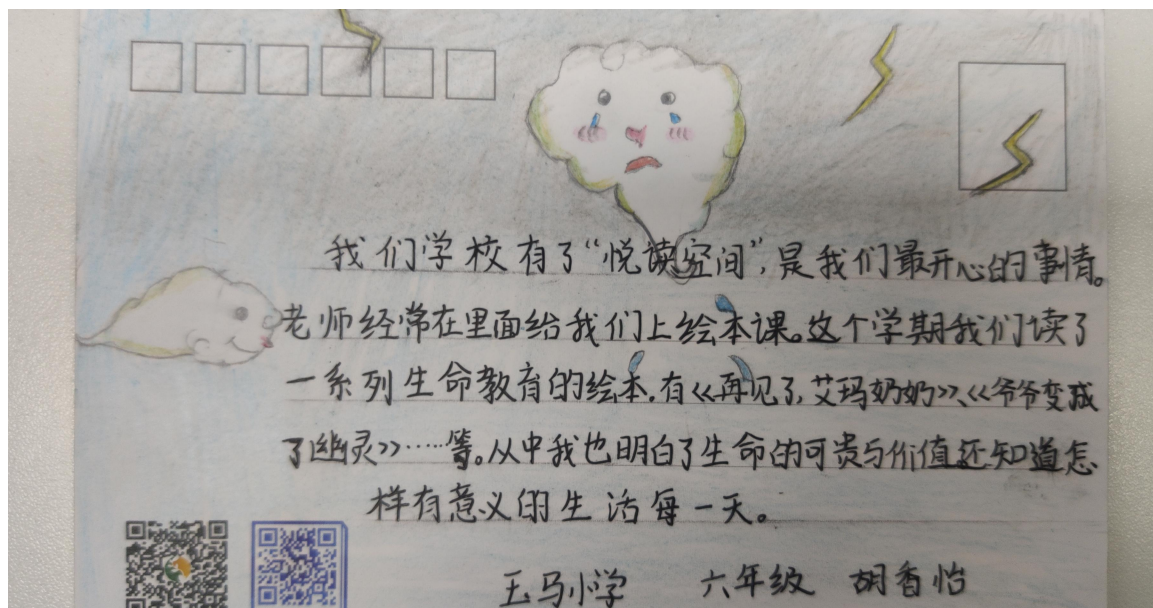 我们学校有了“悦读空间”,是我们最开心的事情。
老师经常在里面给我们上绘本课。这个学期我们读了
一系列生命教育的绘本.有《再见了,艾玛奶奶》、《爷爷变成
了幽灵》……等。从中我也明白了生命的可贵与价值还知道怎
样有意义的生活每一天。
玉马小学 六年级 胡香怡